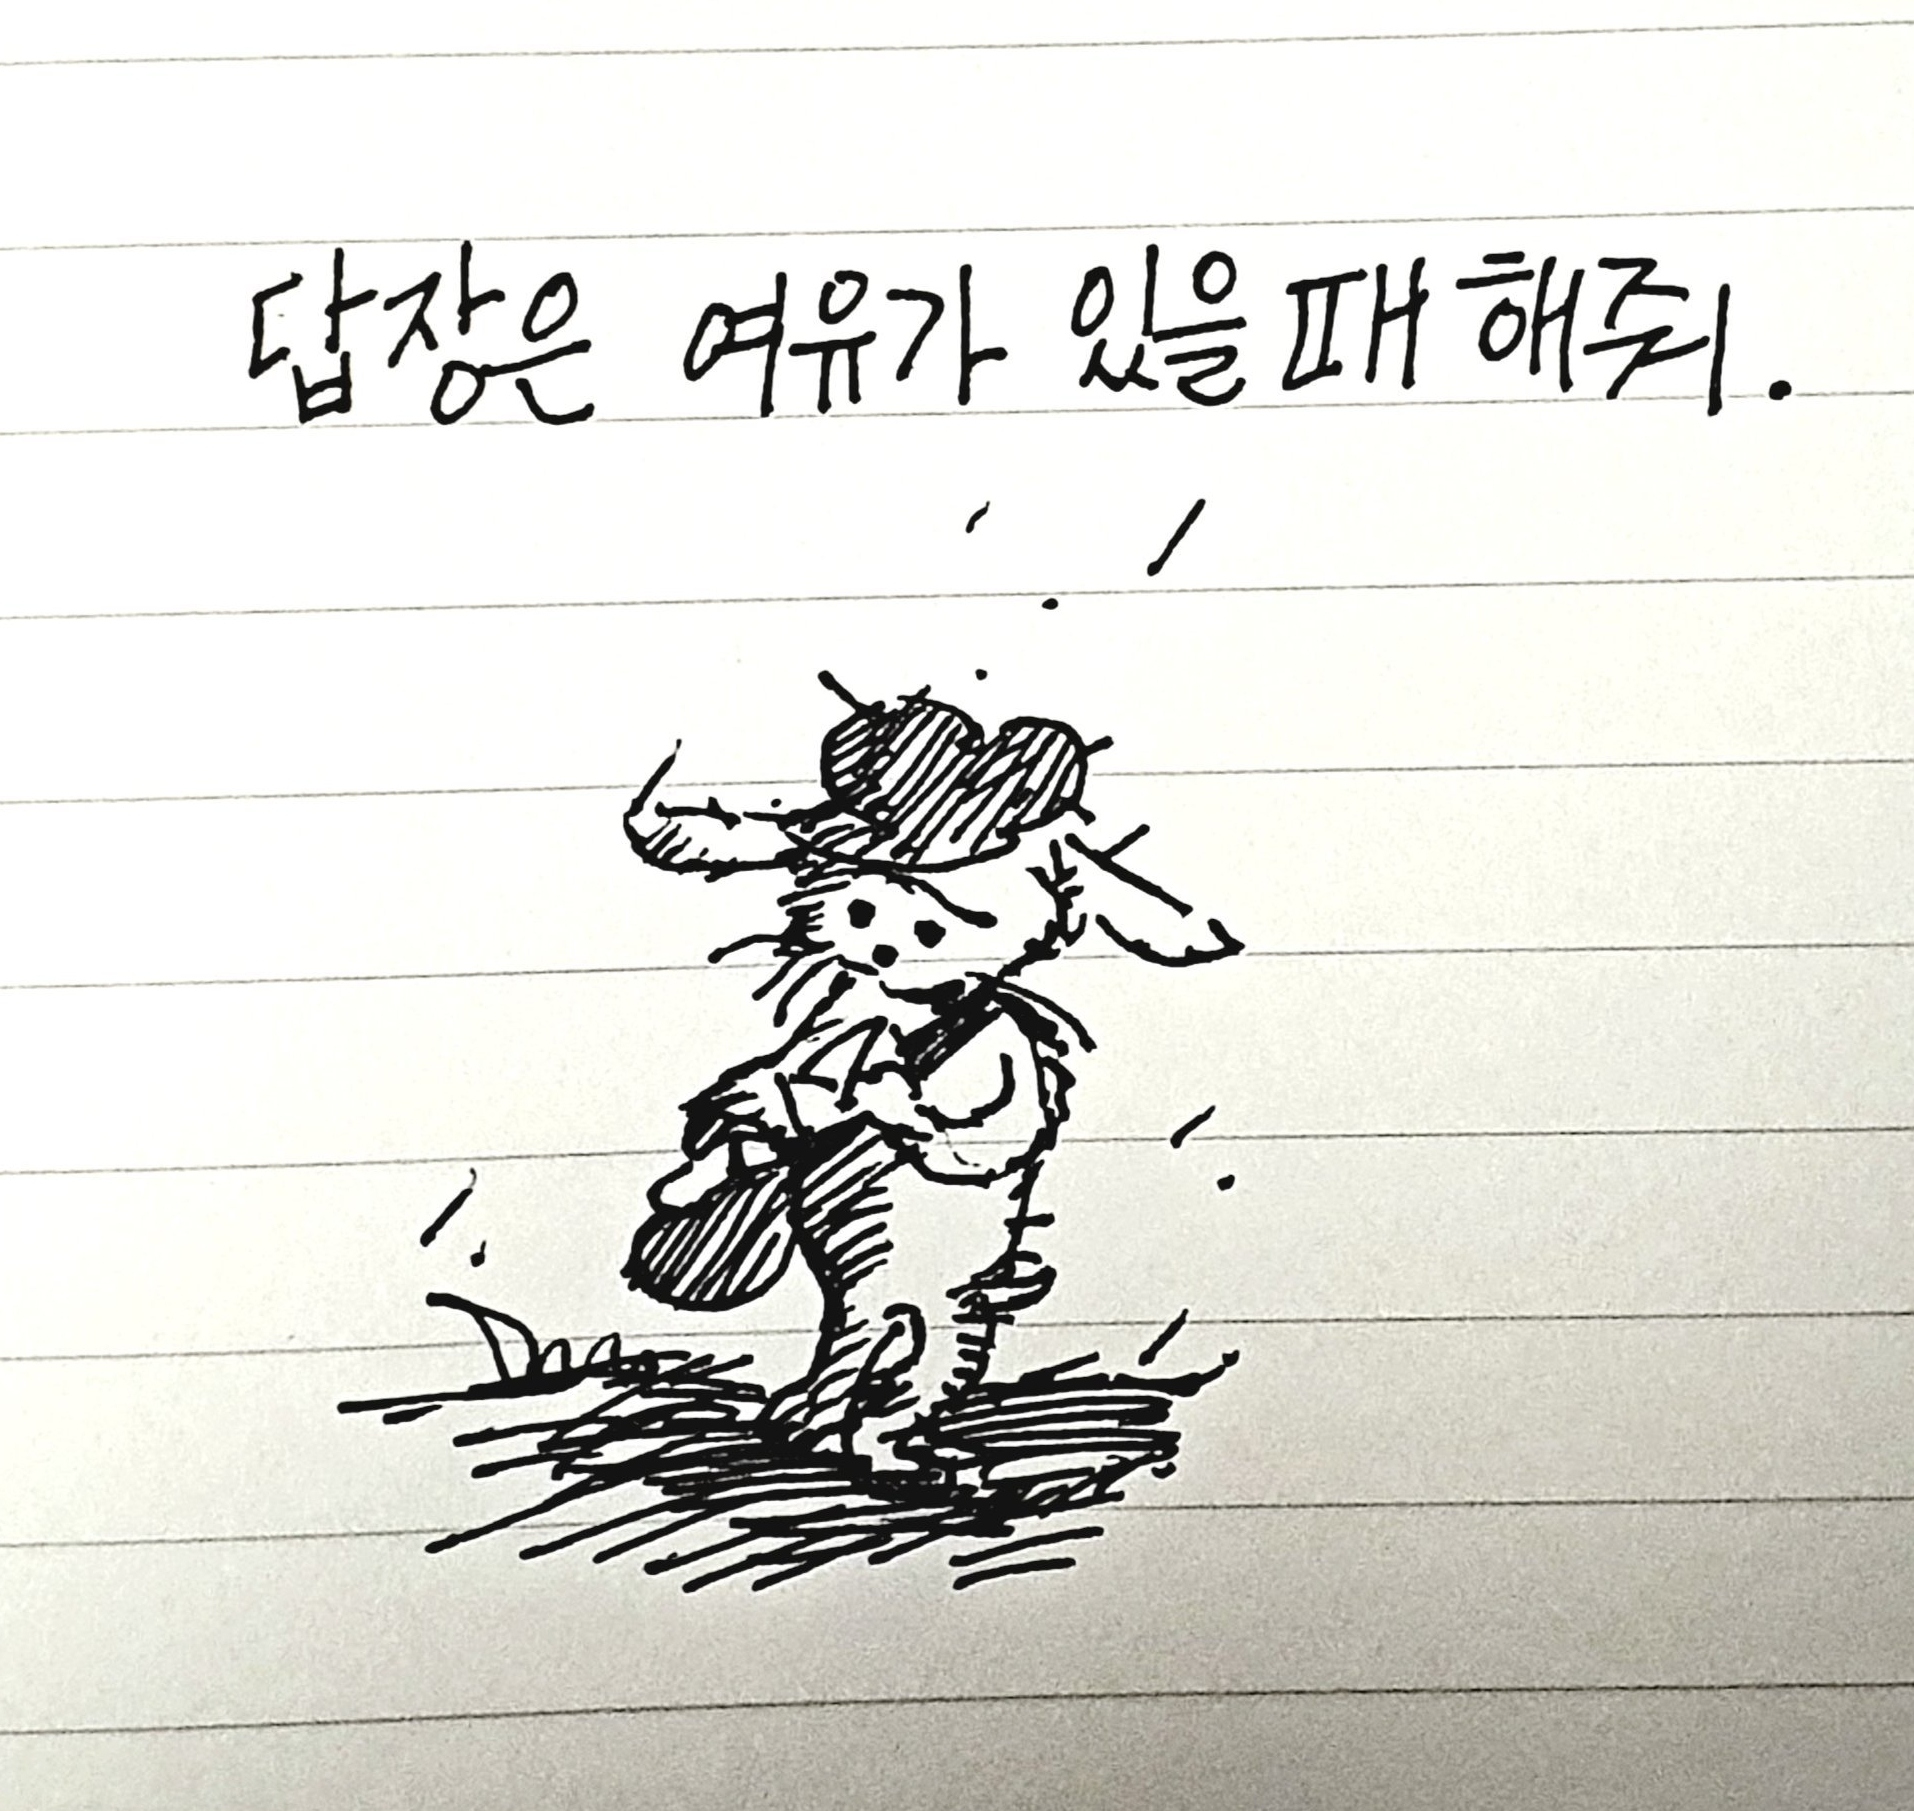 답장은 여유가 있을 때 해줘.